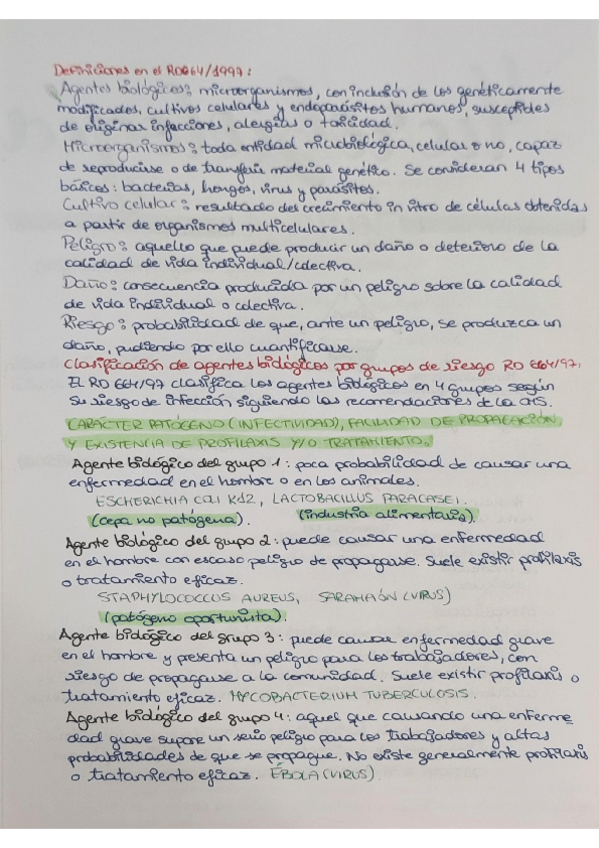 Definiciones en el RD664/1997:
Agentes biológicos: microorganismos, con inclusión de los genéticamente
modificados, cultivos celulares y endoparásitos humanos, susceptibles
de originar infecciones, alergias o toxicidad.
Microorganismos: toda entidad microbiológica, celular o no, capaz
de reproducirse o de transferir material genético. Se consideran 4 tipos
básicos: bacterias, hongos, virus y parásitos.
Cultivo celular: resultado del crecimiento in vitro de células obtenidas
a partir de organismos multicelulares.
Peligro: aquello que puede producir un daño o deterioro de la
calidad de vida individual/colectiva.
Daño: consecuencia producida por un peligro sobre la calidad
de vida individual o colectiva.
Riesgo: probabilidad de que, ante un peligro, se produzca un
daño, pudiendo por ello cuantificarse.
Clasificación de agentes biológicos por grupos de riesgo RD 664/97.
El RD 664/97 clasifica los agentes biológicos en 4 grupos según
su riesgo de infección siguiendo las recomendaciones de la OMS.
CARÁCTER PATÓGENO (INFECTIVIDAD), FACILIDAD DE PROPAGACIÓN
Y EXISTENCIA DE PROFILAXIS Y/O TRATAMIENTO.
Agente biológico del grupo 1: poca probabilidad de causar una
enfermedad en el hombre o en los animales.
ESCHERICHIA COLI K12, LACTOBACILLUS PARACASEI.
(cepa no patógena). (industria alimentaria).
Agente biológico del grupo 2: puede causar una enfermedad
en el hombre con escaso peligro de propagarse. Suele existir profilaxis
o tratamiento eficaz.
STAPHYLOCOCCUS AUREUS, SARAMPIÓN (VIRUS)
(patógeno oportunista).
Agente biológico del grupo 3: puede causar enfermedad grave
en el hombre y presenta un peligro para los trabajadores, con
riesgo de propagarse a la comunidad. Suele existir profilaxis o
tratamiento eficaz. MYCOBACTERIUM TUBERCULOSIS.
Agente biológico del grupo 4: aquel que causando una enferme
dad grave supone un serio peligro para los trabajadores y altas
probabilidades de que se propague. No existe generalmente profilaxis
o tratamiento eficaz. ÉBOLA (VIRUS).